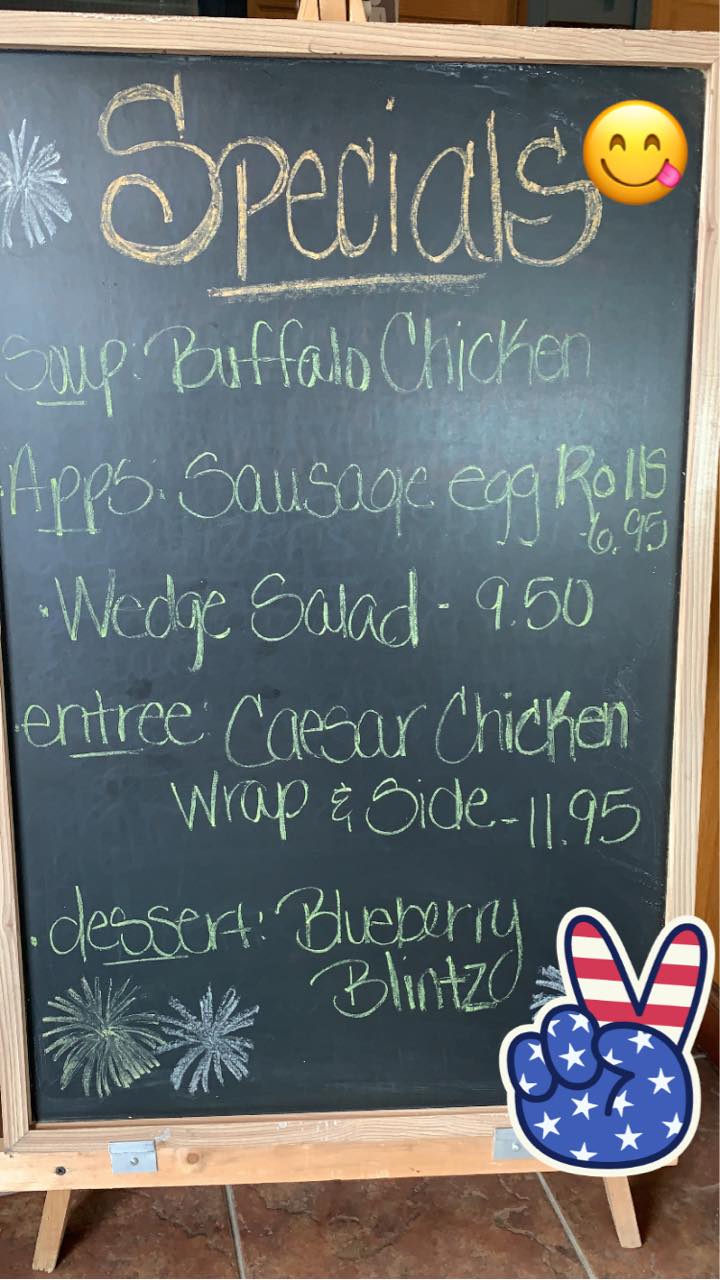 Specials
Soup: Buffalo Chicken
Apps: Sausage egg Rolls
-6.95
·Wedge Salad - 9.50
·entree: Caesar Chicken
Wrap & Side - 11.95
·dessert: Blueberry
Blintz